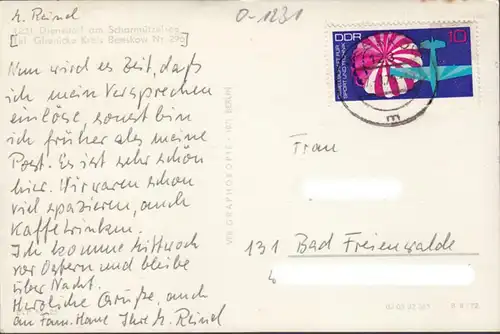 O-1231
1231 Diensdorf am Scharmützelsee
Tel. Glienicke Kreis Beeskow Nr. 296
Nun wird es Zeit, daß
ich mein Versprechen
einlöse, sonst bin
ich früher als meine
Post. Es ist sehr schön
hier. Wir waren schon
viel spazieren, auch
Kaffeetrinken.
Ich komme Mittwoch
vor Ostern und bleibe
über Nacht.
Herzliche Grüße, auch
an Fam. Ihre
VEB GRAPHOKOPIE · 1071 BERLIN
DDR
10
GESELLSCHAFT FÜR
SPORT UND TECHNIK
Frau
131 Bad Freienwalde